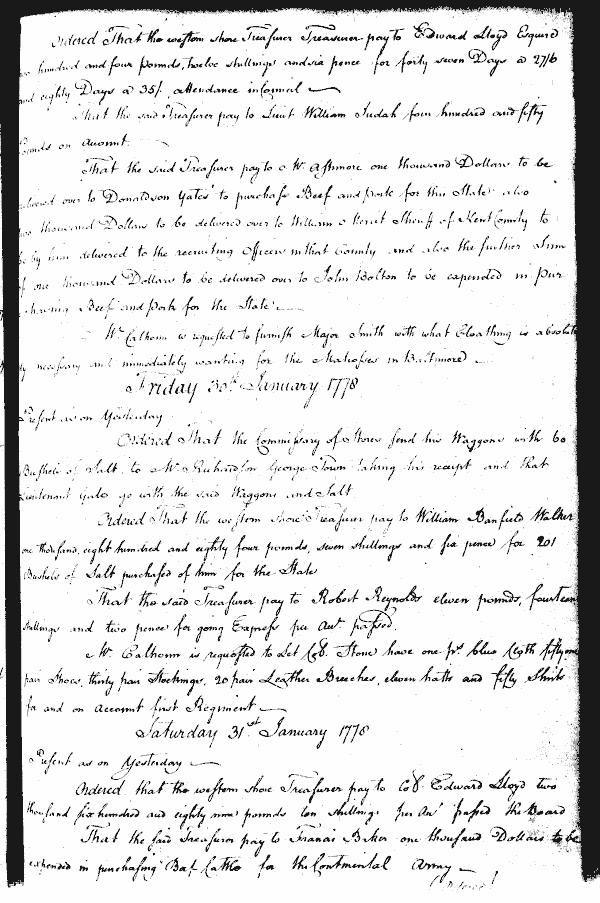 Ordered That the western shore Treasurer Treasurer pay to Edward Lloyd Esquire
hundred and four Pounds, twelve shillings and six pence for forty seven Days @ 27/6
and eighty Days @ 35/. attendance in Council
That the said Treasurer pay to Lieut William Judah four hundred and fifty
Pounds on account.
That the said Treasurer pay to Mr. Ashmore one thousand Dollars to be
delivered over to Donaldson Yates to purchase Beef and pork for this State also
two thousand Dollars to be delivered over to William Merit Sheriff of Kent County to
be by him delivered to the recruiting Officers in that County and also the further Sum
of one thousand Dollars to be delivered over to John Bolton to be expended in pur
chasing Beef and Pork for the State
Mr. Calhoun is requested to furnish Major Smith with what Cloathing is absolute
ly necessary and immediately wanting for the Matrosses in Baltimore
Friday 30th January 1778
Present as on Yesterday
Ordered That the Commissary of Stores send his Waggons with 60
Bushels of Salt, to Mr. Richardson George Town taking his receipt and that
Lieutenant Gale go with the said Waggons and Salt
Ordered That the western shore Treasurer pay to William Banfield Walker
one thousand, eight hundred and eighty four pounds, seven shillings and six pence for 201
Bushels of Salt purchased of him for the State
That the said Treasurer pay to Robert Reynolds eleven pounds, fourteen
shillings and two pence for going Express per Acct. passed.
Mr. Calhoun is requested to Let Col. Stone have one ps. blue Cloth fifty one
pair Shoes, thirty pair Stockings, 20 pair Leather Breeches, eleven hatts and fifty Shirts
for and on account first Regiment
Saturday 31st January 1778
Present as on Yesterday
Ordered that the western shore Treasurer pay to Col. Edward Lloyd two
thousand six hundred and eighty nine pounds ten shillings per Acct passed the Board
That the said Treasurer pay to Francis Baker one thousand Dollars to be
expended in purchasing Beef Cattle for the Continental Army
Ordered